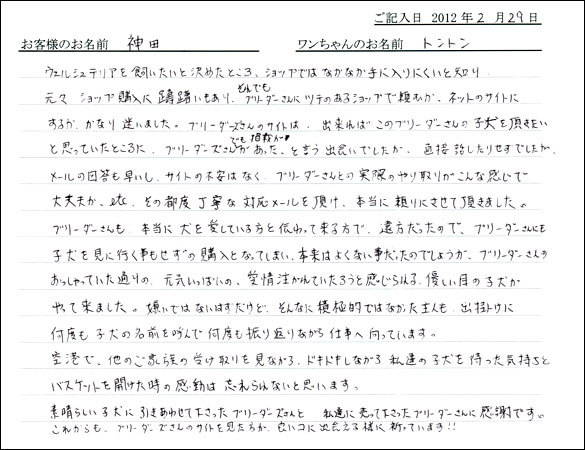 ご記入日 2012年2月29日
お客様のお名前 神田 ワンちゃんのお名前 トントン
ウェルシュテリアを飼いたいと決めたところ、ショップではなかなか手に入りにくいと知り
元々ショップ購入に躊躇いもあり、それでもブリーダーさんにツテのあるショップで頼むか、ネットのサイトに
するか、かなり迷いました。ブリーダーズさんのサイトは、出来ればこのブリーダーさんの子犬を頂きたい
と思っていたところに、ブリーダーズさんがあった、でも相談が と言う出会いでしたが、直接話したりせずでしたが、
メールの回答も早いし、サイトの不安はなく、ブリーダーさんとの実際のやり取りがこんな感じで
大丈夫か、etc、その都度丁寧な対応メールを頂け、本当に頼りにさせて頂きました。
ブリーダーさんも、本当に犬を愛している方と伝わって来る方で、遠方だったので、ブリーダーさんにも
子犬を見に行く事もせずの購入となってしまい、本来はよくない事だったのでしょうが、ブリーダーさんの
おっしゃっていた通りの、元気いっぱいの、愛情注がれていたろうと感じられる、優しい目の子犬が
やって来ました。嫌いではないはずだけど、そんなに積極的ではなかった主人も、出掛けに
何度も子犬の名前を呼んで何度も振り返りながら仕事へ向っています。
空港で、他のご家族の受け取りを見ながら、ドキドキしながら私達の子犬を待った気持ちと
バスケットを開けた時の感動は忘れられないと思います。
素晴らしい子犬に引きあわせて下さったブリーダーズさんと 私達に売って下さったブリーダーさんに感謝です。
これからも、ブリーダーズさんのサイトを見た方が、良いコに出会える様に祈っています!!